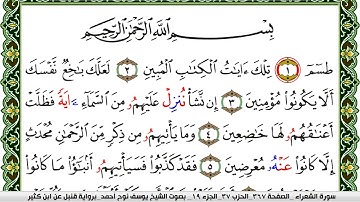 بِسْمِ ٱللَّهِ ٱلرَّحْمَٰنِ ٱلرَّحِيمِ
طسٓمٓ ١ تِلْكَ ءَايَٰتُ ٱلْكِتَٰبِ ٱلْمُبِينِ ٢ لَعَلَّكَ بَٰخِعٌ نَّفْسَكَ
أَلَّا يَكُونُواْ مُؤْمِنِينَ ٣ إِن نَّشَأْ نُنزِلْ عَلَيْهِمُۥ مِنَ ٱلسَّمَآءِ ءَايَةً فَظَلَّتْ
أَعْنَٰقُهُمُۥ لَهَا خَٰضِعِينَ ٤ وَمَا يَأْتِيهِمُۥ مِن ذِكْرٍ مِّنَ ٱلرَّحْمَٰنِ مُحْدَثٍ
إِلَّا كَانُواْ عَنْهُۥ مُعْرِضِينَ ٥ فَقَدْ كَذَّبُواْ فَسَيَأْتِيهِمُۥ أَنۢبَٰٓؤُاْ مَا كَانُواْ
سورة الشعراء الصفحة ٣٦٧ الحزب ٣٧ الجزء ١٩ بصوت الشيخ يوسف نوح أحمد برواية قنبل عن ابن كثير